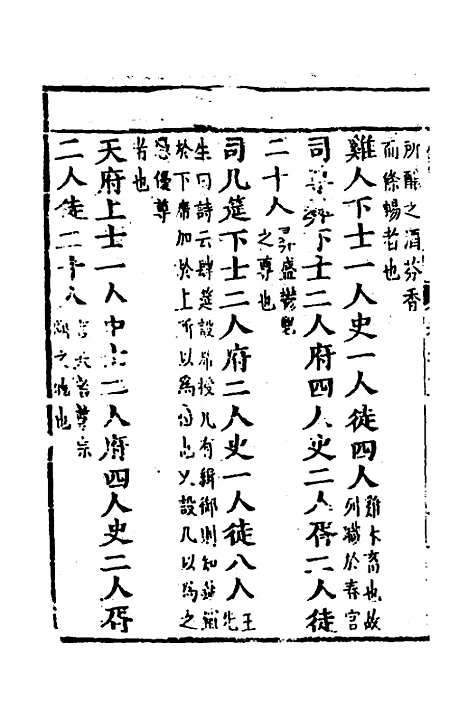 所釀之酒芬香
而條暢者也
雞人下士一人史一人徒四人雞木畜也故
列職於春宮
司尊彝下士二人府四人史二人胥二人徒
二十人彝盛鬱鬯
之尊也
司几筵下士二人府二人史一人徒八人王
先
生曰詩云肆筵設席授几有緝御則知筵鋪
於下席加於上所以為位也又設几以為之
憑優尊
者也
天府上士一人中士二人府四人史二人胥
二人徒二十人言天者尊宗
廟之物也